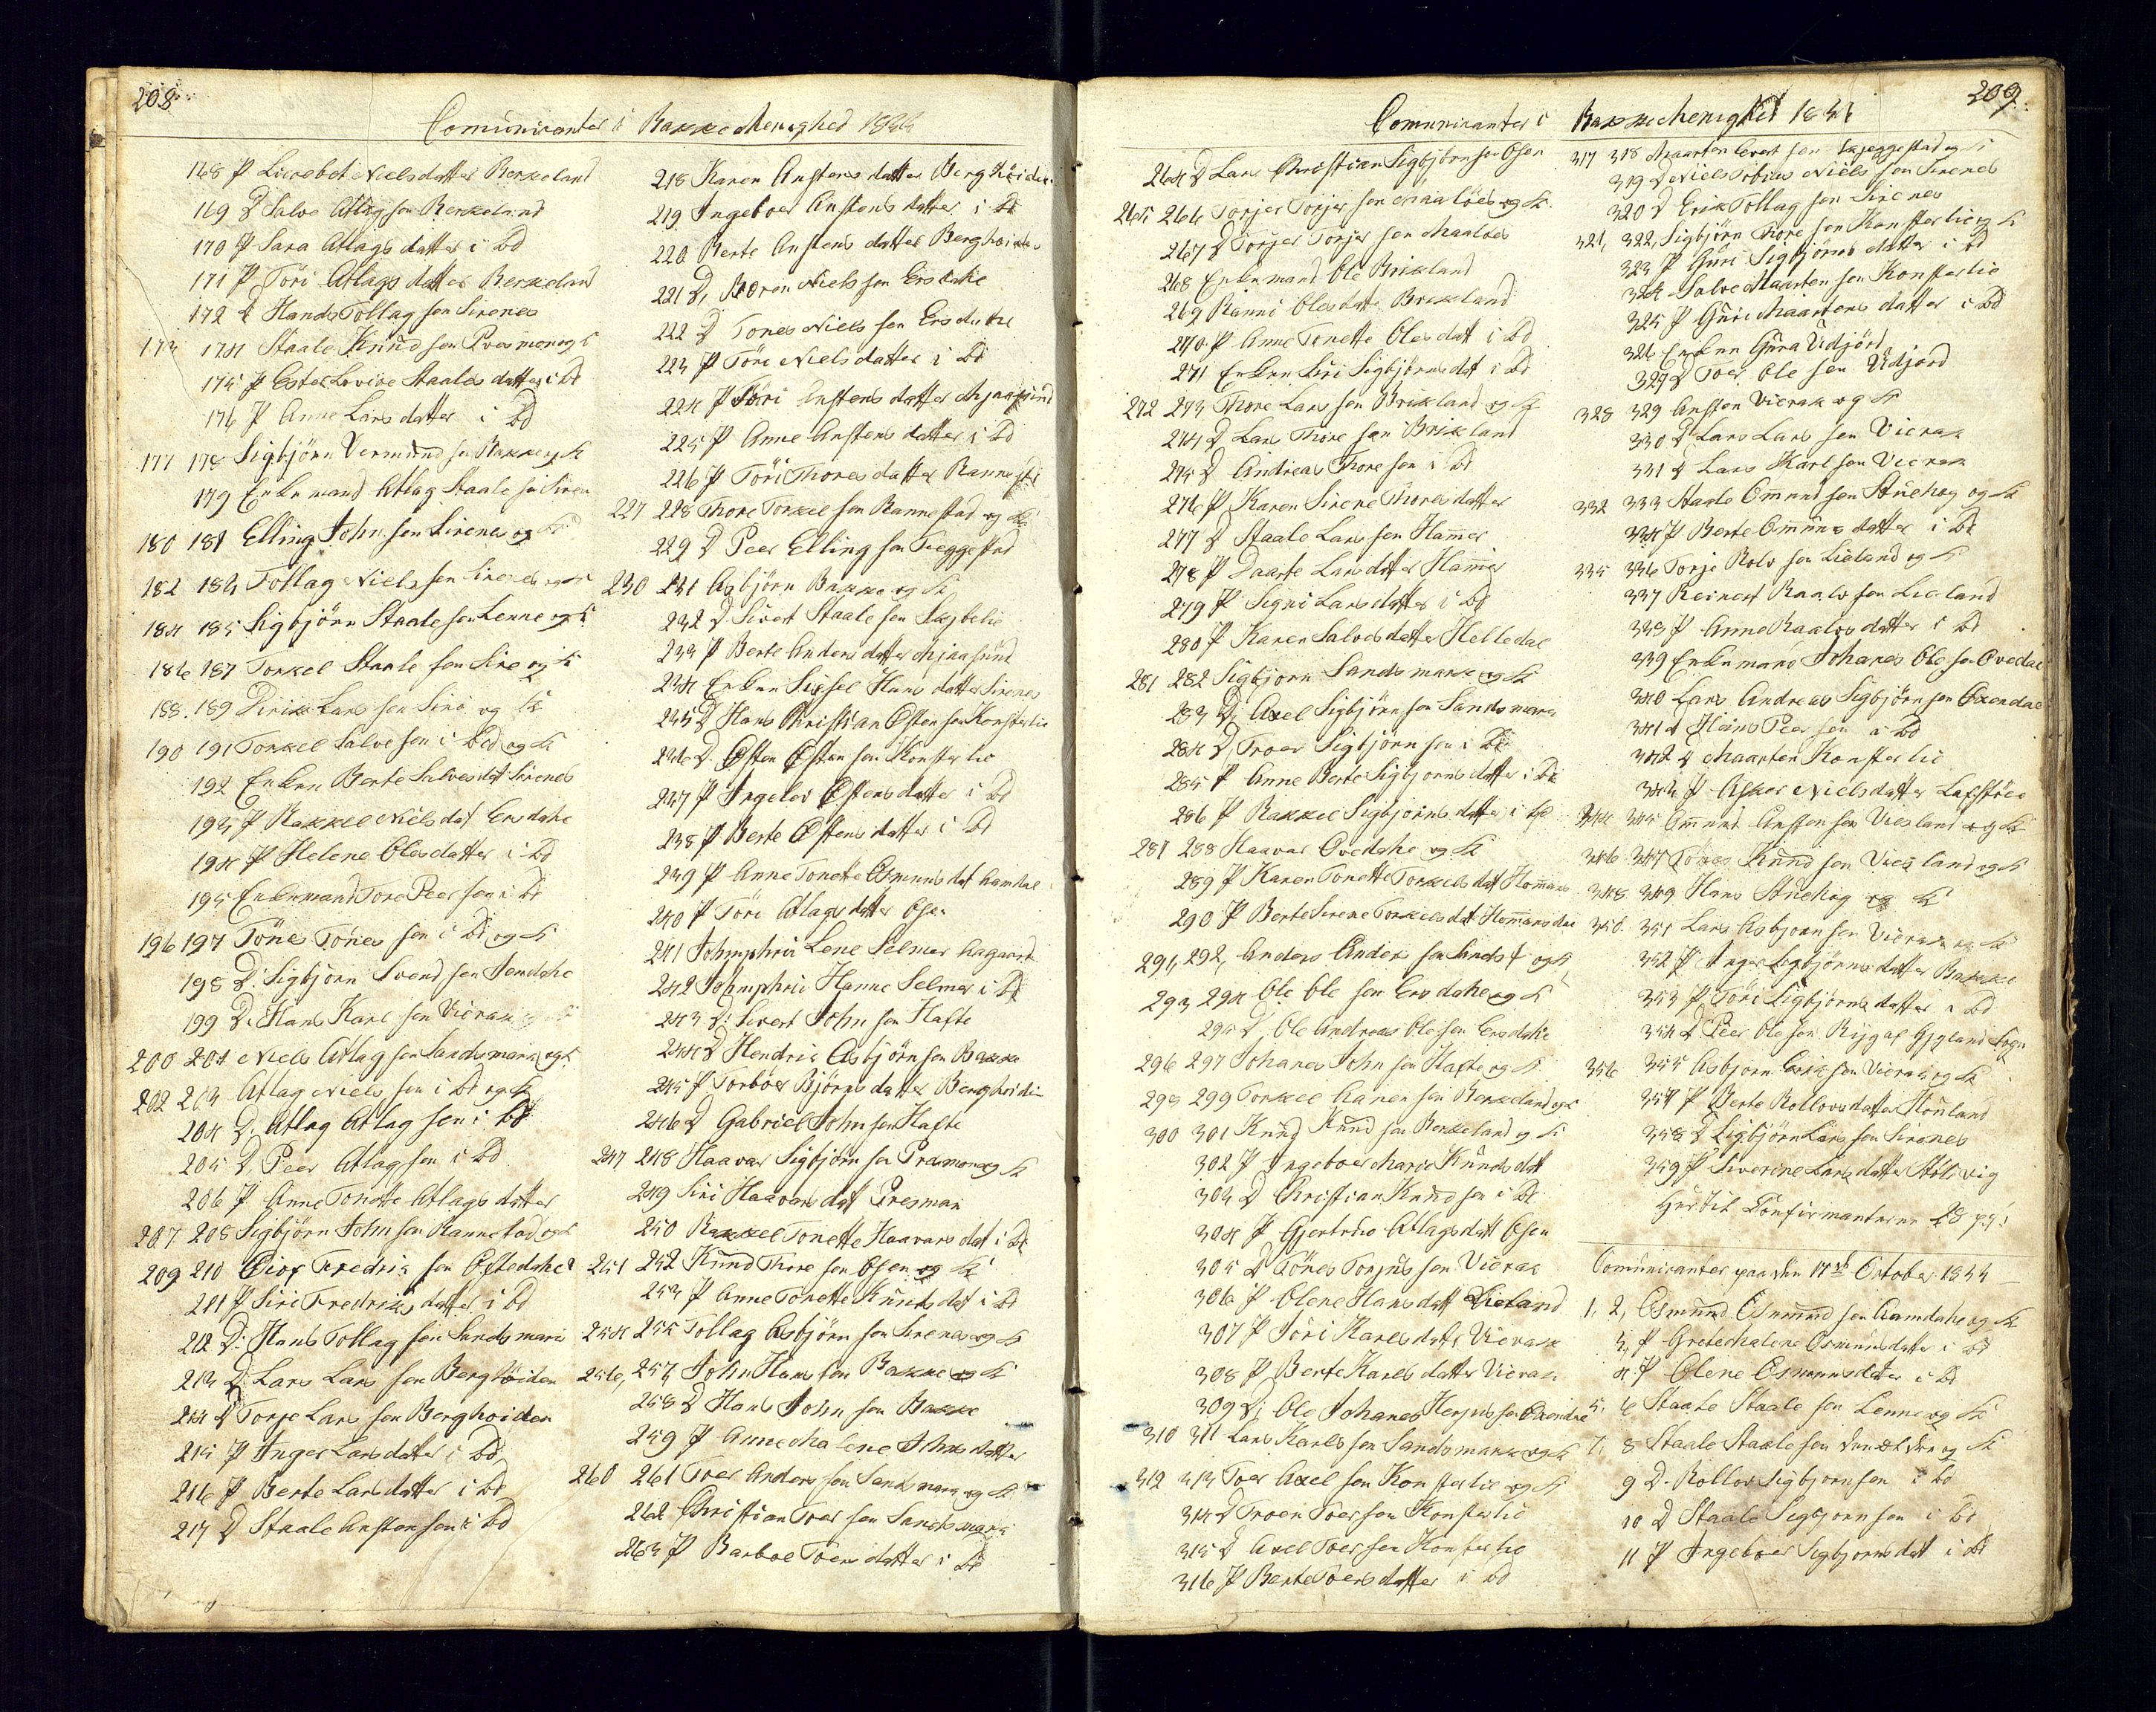 208
Comunicanter i Bakke Menighed 1844
168 P Lisebet Nielsdatter Berkeland
169 D Salve Atlagsen Berkeland
170 P Sara Atlags datter i bd
171 P Töri Atlags datter Berkeland
172 D Hans Tollagsen Sirenes
173 174 Staale Knud sen og K
175 P Ester Lovise Staales datter i bd
176 P Anne Lars datter i bd
177 178 Sigbjörn Vermund sen Bakke og K
179 Enkemand Atlag Staale sen Siren
180 181 Elling John sen Sirenes og K
182 183 Tollag Niels sen Sirenes og K
184 185 Sigbjörn Staale sen Lenne og K
186 187 Torkel Staale sen Sire og K
188. 189 Dirik Lars sen Sire og K
190 191 Torkel Salve sen i bd og K
192 Enken Berte Salvesdat Sirenes
193 P Rakkel Nielsdat Ersdahe
194 P Helene Olesdatter i bd
195 Enkemand Tore Peer sen i bd
196 197 Tönes Tönes sen i bd og K
198 D: Sigbjörn Svend sen
199 D: Hans Karl sen Vierak
200 201 Niels Atlag sen Sandsmark og K
202 203 Atlag Niels sen i bd og K
204 D: Atlag Atlag sen i bd
205 D. Peer Atlag sen i bd
206 P Anne Tonette Atlags datter
207 208 Sigbjörn John sen Rannestad og K
209 210 Fredrik sen
211 P Siri Fredriks datter i bd
212 D: Hans Tollag sen Sandsmark
213 D: Lars Lars sen Berghöiden
214 D Torje Lars sen Berghoiden
215 P Inger Lars datter i bd
216 P Berte Lars datter i bd
217 D Staale Ansten sen i bd
218 Karen Anstens datter Berghöiden
219 Ingeboer Anstens datter i bd
220 Berte Anstens datter Berghoiden
221 D, Sören Niels sen Ersdahe
222 D Tones Niels sen Ersdahe
223 P Töre Niels datter i bd
224 P Siri Anstens datter Mjaasund
225 P Anne Anstens datter i bd
226 P Töri Thores datter Rannestd
227 228 Thore Torkel sen Rannestad og K
229 D Peer Elling sen
230 231 Asbjörn Bakke og K
232 D Sivert Staale sen
233 P Berte Anders datter Mjaasund
234 Enken Sissel Hans datter Sirenes
235 D Hans Christian Østen sen Konsterlie
236 D. Østen Østen sen Konsterlie
237 P Ingeboer Østens datter i bd
238 P Berte Østens datter i bd
239 P Anne Tonette Osmunsdat Aamdal
240 P Töri Atlags datter Osen
241 Johmphrü Lene Selmer Aagaard
242 Johmphrü Hanne Selmer i bd
243 D: Sivert John sen Hafte
244 D Hendrik Asbjörn sen Bakke
245 P Torböer Björns datter Berghoiden
246 D Gabriel John sen Hafte
247 248 Haavar Sigbjörn sen Presmon og K
249 Siri Haavarsdat Presman
250 Rakkel Tonette Haavars dat i bd
251 252 Knud Thore sen Osen og K
253 P Anne Tonette Knuds dat i bd
254 255 Tollag Asbjörn sen Sirenes og K
256, 257 John Hans sen Bakke og K
258 D Hans John sen Bakke
259 P Anne Malene Johns datter
260 261 Toer Anders sen Sandsmark og K
262 Christian Toer sen Sandsmark
263 P Barboe Toers datter i bd
209
Comunicanter i Bakke Menighed 1844
264 D Lars Christian Sigbjörn sen Osen
265 266 Torjer Torjer sen Maalöes og K
267 D Torjer Torjer sen Maaloes
268 Enkemand Ole Birkland
269 Ranni Olesdatt Birkland
270 P Anne Tonette Olesdat i bd
271 Enken Siri Sigbjörnsdat i bd
272 273 Thore Lars sen Birkland og K
274 D Lars Thore sen Birkland
275 D Andreas Thore sen i bd
276 P Karen Sirene Thores datter
277 D Staale Lars sen Hamer
278 P Daarte Larsdatter Hamer
279 P Signi Lars datter i bd
280 P Karen Salves datter Helledal
281 282 Sigbjorn Sandsmark og K
283 D; Axel Sigbjörn sen Sandsmark
284 D, Troer Sigbjörn sen i bd
285 P Anne Berte Sigbjorns datter i bd
286 P Rakkel Sigbjörns datter i bd
287 288 Haavar Ovedahe og K
289 P Karen Tonette Torkelsdat Homans
290 P Berte Sirene Torkelsdat Homansdal
291, 292, Anders Anders sen og K
293 294 Ole Ole sen Ersdahe og K
295 D, Ole Andreas Olesen Ersdahe
296 297 Johanes John sen Hafte og K
298 299 Torkel Haaver sen Berkeland og K
300 301 Knud Knud sen Berkeland og K
302 P Ingeboer Marie Knuds dat
303 D Christian Knud sen i bd
304 P Gjertrüd Atlagsdatt Osen
305 D Tönes Torjus sen Vierak
306 P Olene Hansdatt Vieland
307 P Töri Karls datt Vierak
308 P Berte Karls datter Vierak
309 D; Ole Johanes sen Øxendal
310 311 Lars Karls sen Sandsmark og K
312 313 Toer Axel sen Konsterlie og K
314 D Troen Toersen Konsterlie
315 D Axel Toersen Konsterlie
316 P Berte Toers datter i bd
317 318 Maarten Evert sen Skjeggestad og K
319 D Niels Tobias Niels sen Sirenes
320 D Erik Tollag sen Sirenes
321, 322, Sigbjörn Thore sen Konsterlie og K
323 P Guri Sigbjörns datter i bd
324 Salve Maarten sen Konsterlie
325 P Guri Maartens datter i bd
326 Enken Gura Udjörd
329 D Toer Ole sen Udjord
328 329 Ansten Vierak og K
330 D Lars Lars sen Vierak
331 D Lars Karl sen Vierak
332 333 Staale Omund sen Stuehag og K
334 P Berte Omuns datter i bd
335 336 Torje Rolv sen Lieland og K
337 Reinert Raalv sen Lieland
338 P Anne Raalvs datter i bd
339 Enkemand Johanes Ole sen Ovedal
340 Lars Andreas Sigbjörn sen Øxendal
341 D Hans Peer sen i bd
342 D Maarten Konsterlie
343 P Niels datter
344 345 Omund Ansten sen Viesland og K
346 347 Tönes Knud sen Viesland og K
348 349 Hans Stuehag og K
350 351 Lars Asbjorn sen Vierak og K
352 P Inger Sigbjörns datter Bakke
353 P Töri Sigbjörns datter i bd
354 D Peer Ole sen Gyland Sogn
356 355 Asbjorn Erik sen Vierak og K
357 P Berte Rollovs datter
358 D Sigbjörn Lars sen Sirenes
359 P Siverine Lars datter
Confirmanterne 28
Comunicanter paa den 17de October 1844
1, 2, Osmund Osmund sen Aamdahe og K
3, P Grete Malene Osmunsdatte i bd
4 P Olene Osmunsdater i bd
5, 6 Staale Staale sen Lenne og K
7, 8 Staale Staale sen og K
9 D. Rollov Sigbjornsen i bd
10 D Staale Sigbjorn sen i bd
11 P Ingeboer Sigbjornsdat i bd